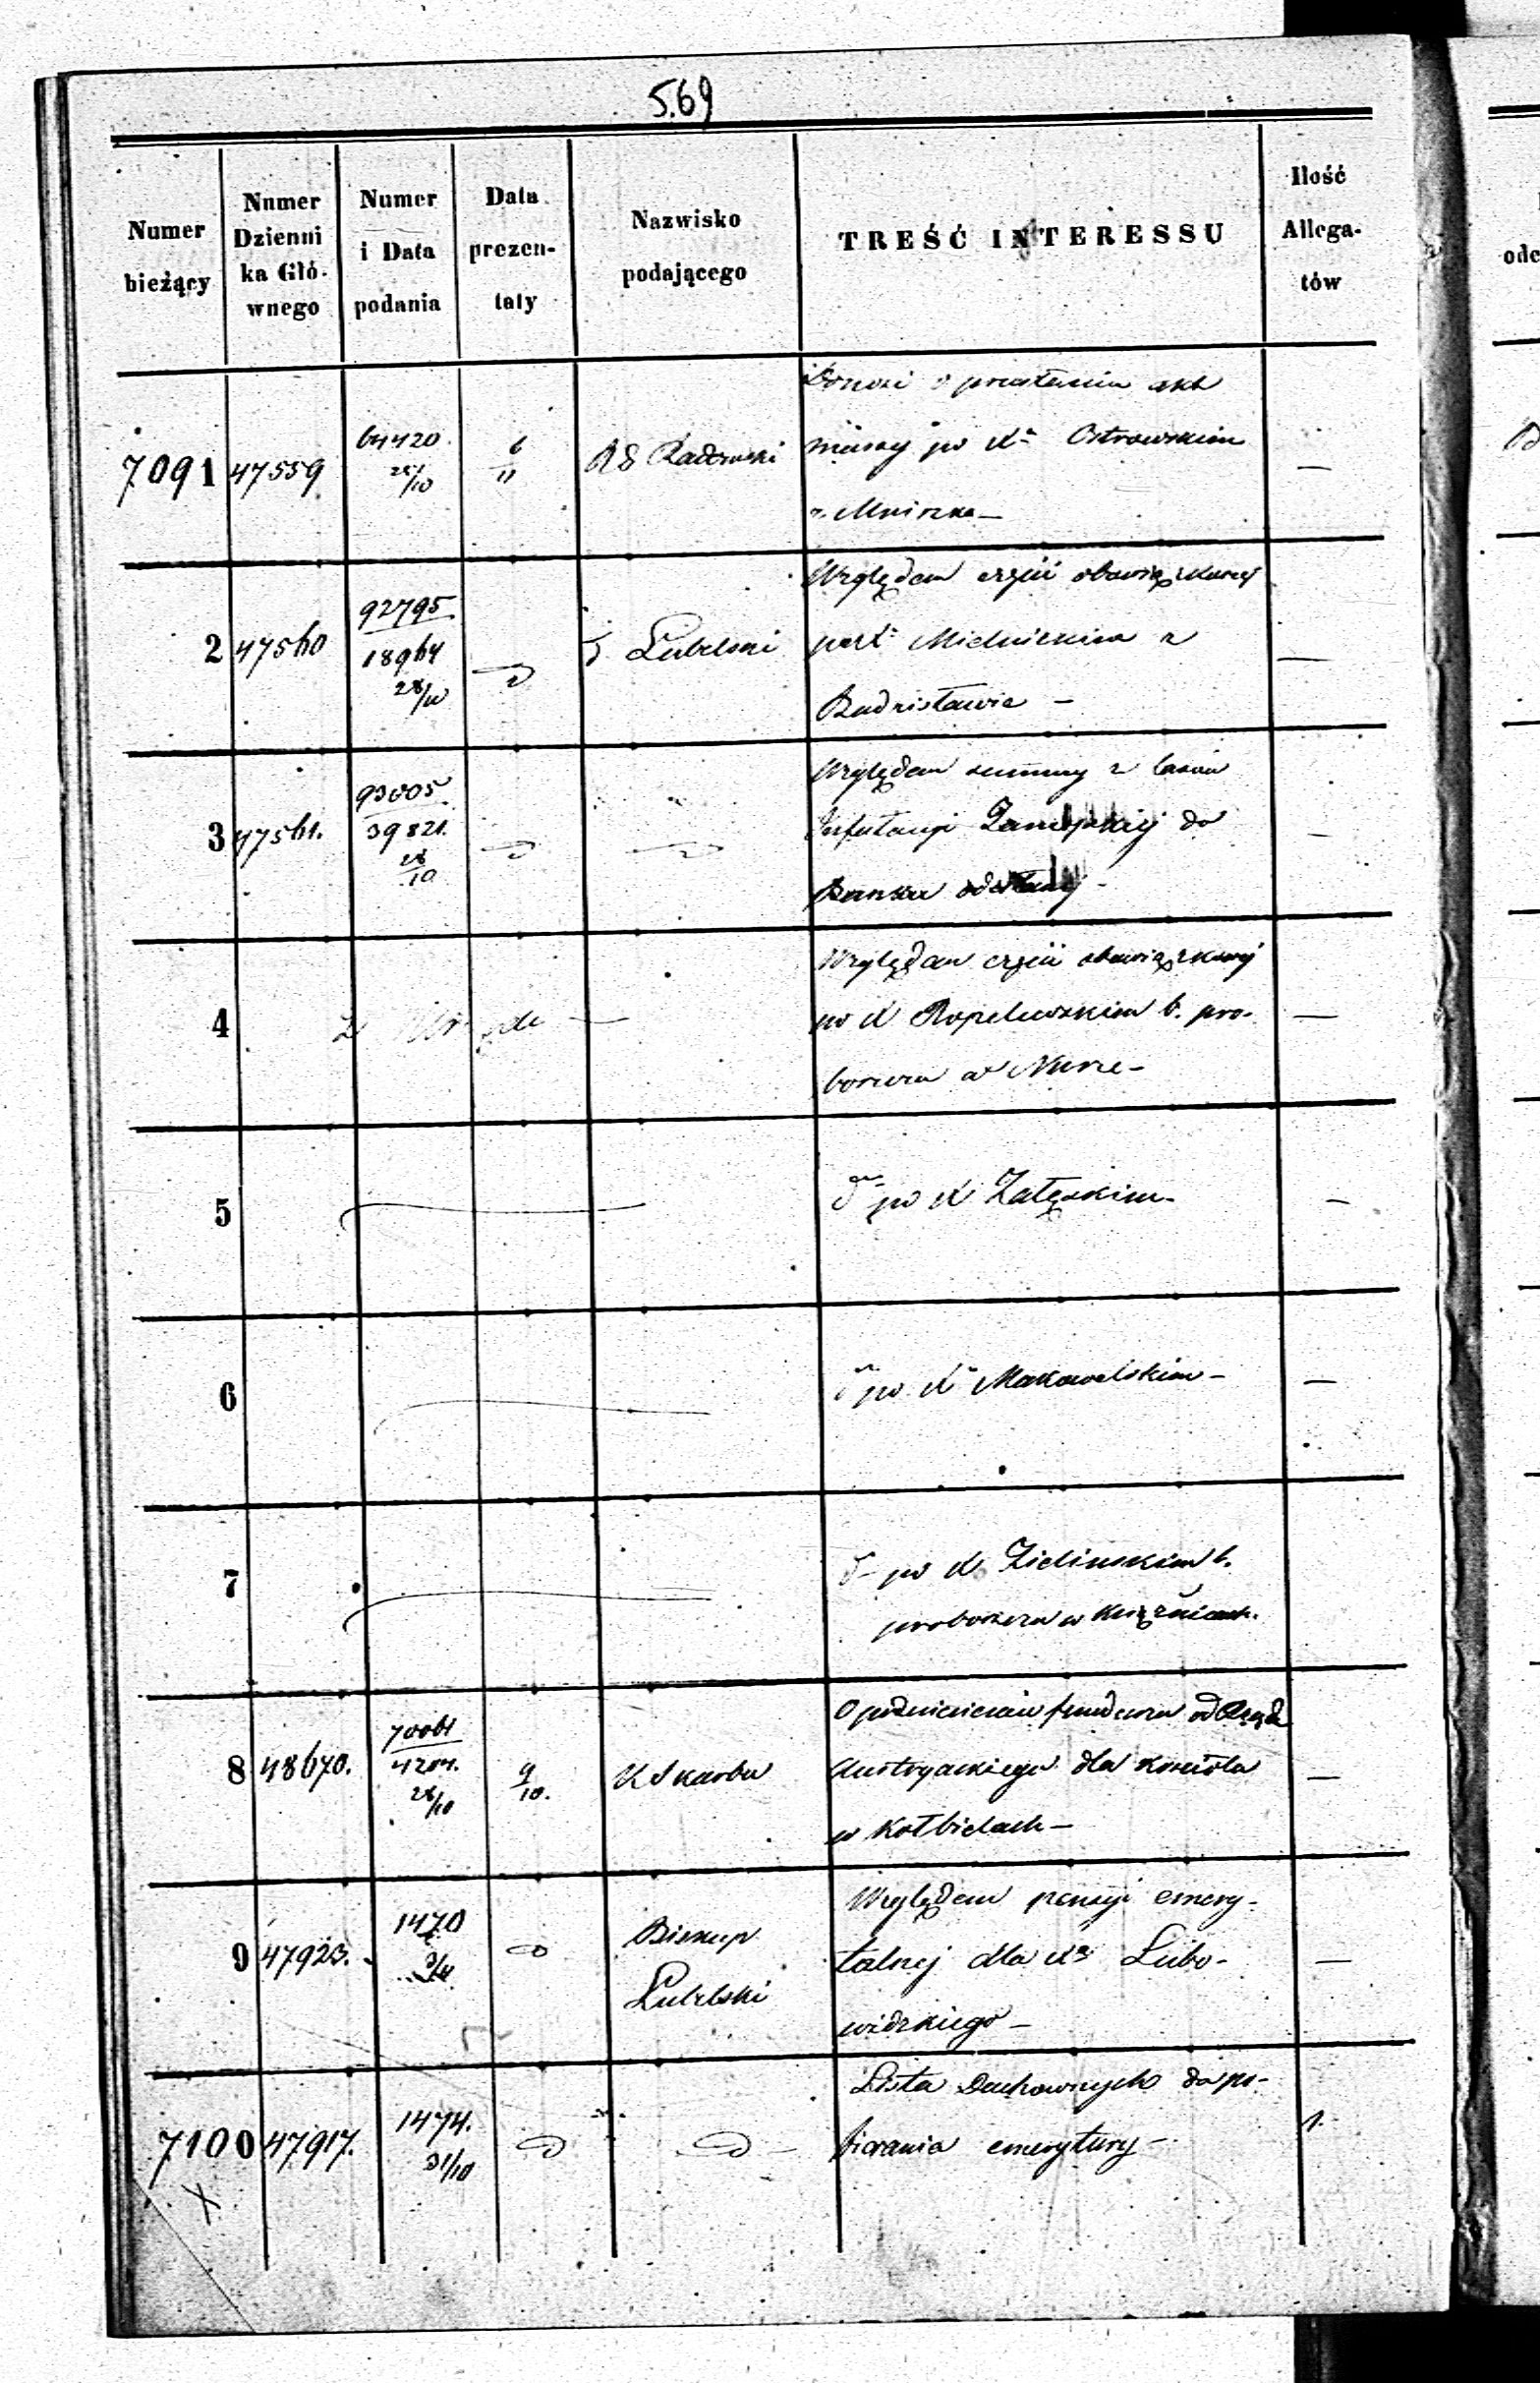 569
Numer bieżący
Numer Dziennika Głównego
Numer i Data podania
Data prezentaty
Nazwisko podającego
TREŚĆ INTERESSU
Ilość Allegatów
7091 47559 64420 6/11 R G Radomski
Donosi o przesłaniu akt
massy po Xs Ostrowskim
z Mniszka —
2 47560 92795 18964 28/10 Lubelski
Względem części obowiązkowej
post: Mielnickim z
—
3 47561. 93005 39821. 28/10
Względem summy z lasów
Infułacyi Zamojskiej do
Banku odesłanej -
4 Z Urzędu —
Względem części obowiązkowej
po X Ropelewskim b. pro-
boszczu w Nurze -
5
dto po X Załęskim -
6
dto po X Makowelskim -
7
dto po X Zielinskim b.
proboszczu w Książnicach.
8 48670. 70061 4204. 28/10 9/10. K Skarbu
O podniesieniu funduszu od Rządu
Austryackiego dla kościoła
w Kołbielach —
9 47923. 1470 Biskup
Lubelski
Względem pensyi emery-
talnej dla Xs Lubo-
widzkiego —
7100 47917. 1474. 31/10
Lista Duchownych do po-
bierania emerytury — 1.
X